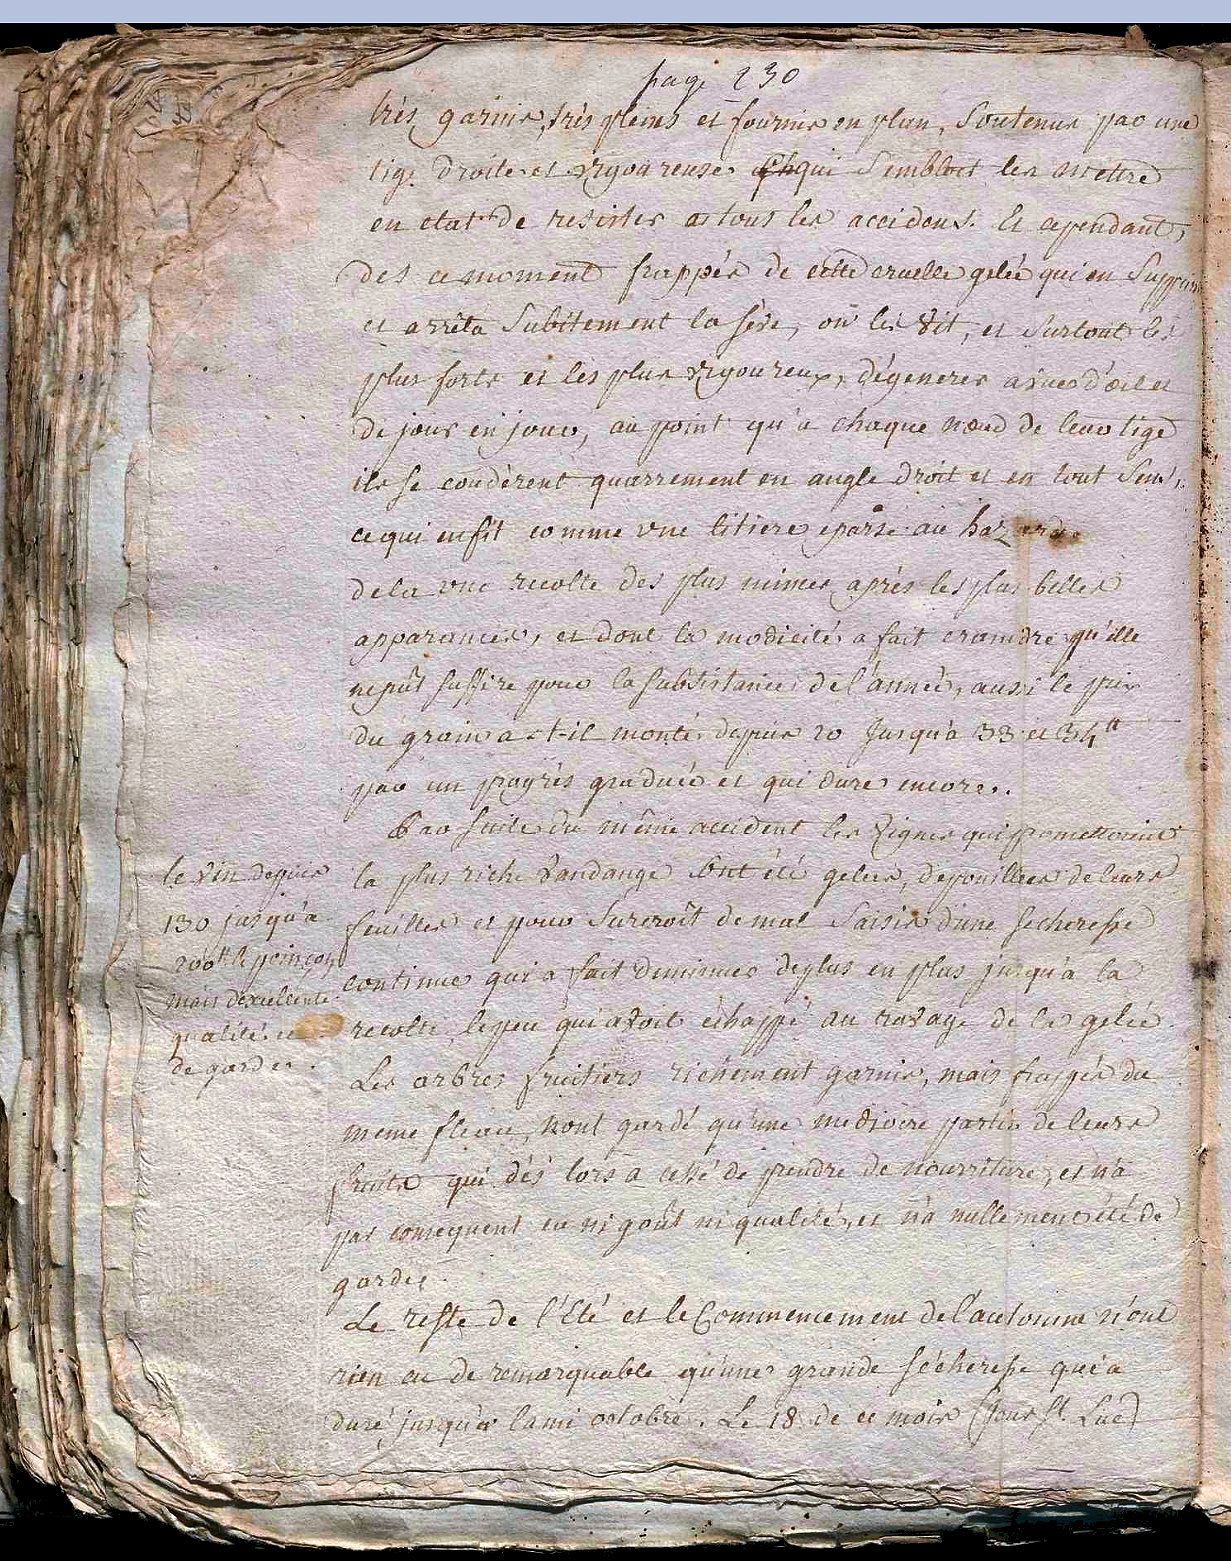 page 230
très garnis, très pleins et fournis en plan, Soutenus par une
tige droite et vigoureuse qui Sembloit les mettre
en etat de resister a tous les accidens. Et cependant,
des ce moment frappés de cette cruelle gelée qui en Supprima
et arrêta Subitement la séve, on les vit, et surtout les
plus forts et les plus vigoureux, dégenerer a vue d'œil et
de jour en jour, au point qu'a chaque nœud de leur tige
ils se coudèrent quarrement en angle droit et en tout Sens,
ce qui en fit comme une litiere eparse au hazard.
dela une recolte des plus minces après les plus belles
apparances, et dont la modicité a fait craindre qu'elle
ne pût suffire pour la subsistance de l'année, aussi le prix
du grain a-t-il monté depuis 20 Jusqu'a 33 et 34 ₶
par un progrès graduée et qui dure encore.
Par suite du même accident les vignes qui promettoient
la plus riche vandange ont été gelées, depouillées de leurs
feuilles et pour Surcroît de mal Saisies d'une secheresse
continue qui a fait diminuer de plus en plus jusqu'a la
recolte le peu qui avoit échappé au ravage de la gelée.
Les arbres fruitiers richement garnis, mais frappés du
meme fleau, n'ont gardé qu'une mediocre partie de leurs
fruits qui dès lors a cessé de prendre de nourriture, et n'a
par consequent eu ni goût ni qualité, et n'a nullement été de
gardée.
Le reste de l'Eté et le Commencement de l'automne n'ont
rien eu de remarquable qu'une grande sécheresse qui a
duré jusqu'a la mi octobre. Le 18 de ce mois (jour St. Luc)
le vin depuis
130 jusqu'a
200 ₶ le poinçon
mais d'excellente
qualité et
de garder.